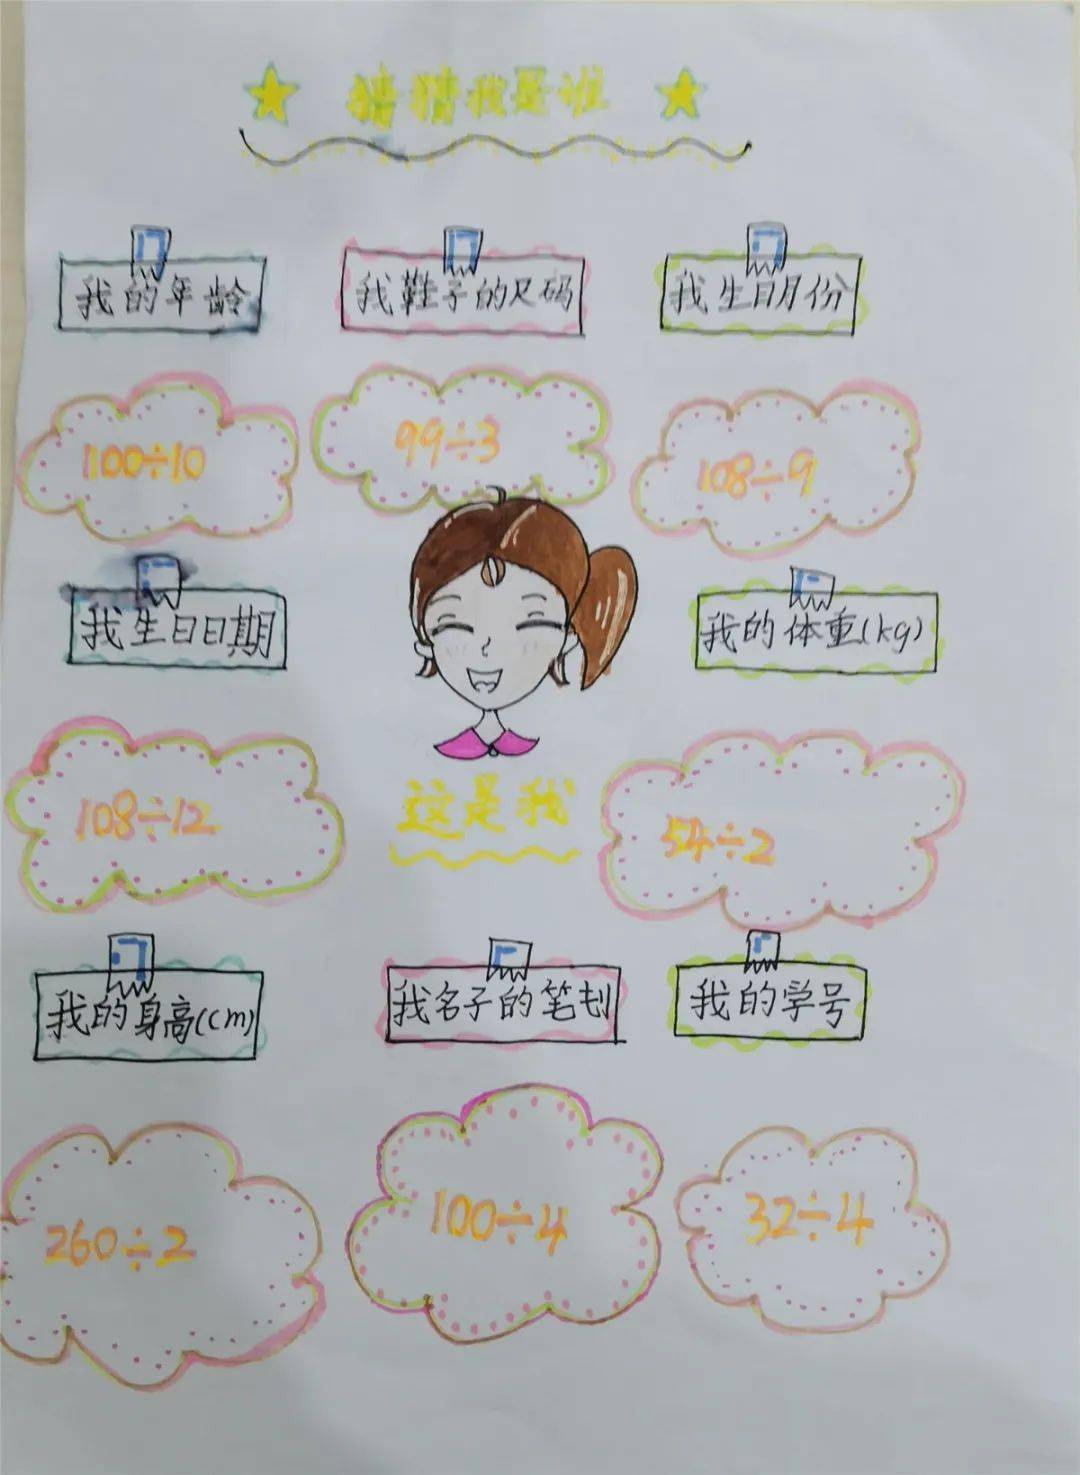 猜猜我是谁
我的年龄
我鞋子的尺码
我生日月份
100÷10
99÷3
108÷9
我生日日期
我的体重(kg)
108÷12
这是我
54÷2
我的身高(cm)
我名子的笔划
我的学号
260÷2
100÷4
32÷4